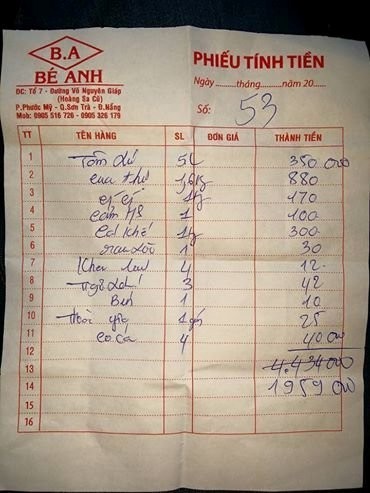 B.A
BÉ ANH
ĐC: Tổ 7 - Đường Võ Nguyên Giáp
(Hoàng Sa Cũ)
P.Phước Mỹ - Q.Sơn Trà - Đ.Nẵng
Mob: 0905 516 726 - 0905 326 179
PHIẾU TÍNH TIỀN
Ngày.........tháng.........năm 20.....
Số: 53
TT TÊN HÀNG SL ĐƠN GIÁ THÀNH TIỀN
1 Tôm 5L 350 000
2 cua 880
3 170
4 cơm HS 1 100
5 Cá Khế 300
6 rau 1 30
7 Khăn lau 4 12
8 3 42
9 Ben 1 10
10 25
11 4 40 000
12 4.434 000
13 1959 000
14
15
16